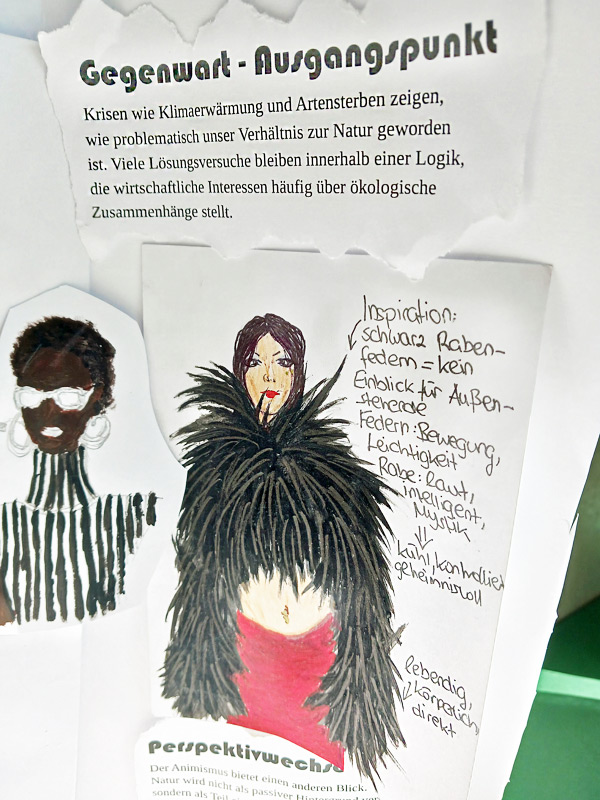 Gegenwart - Ausgangspunkt
Krisen wie Klimaerwärmung und Artensterben zeigen,
wie problematisch unser Verhältnis zur Natur geworden
ist. Viele Lösungsversuche bleiben innerhalb einer Logik,
die wirtschaftliche Interessen häufig über ökologische
Zusammenhänge stellt.
Inspiration:
schwarz Raben-
federn = kein
Einblick für Außen-
stehende
Federn: Bewegung,
Leichtigkeit
Rabe: laut,
intelligent,
Mystik
kühl, kontrolliert
geheimnisvoll
lebendig,
körperlich,
direkt
Perspektivwechse
Der Animismus bietet einen anderen Blick.
Natur wird nicht als passiver Hintergrund
sondern als Teil